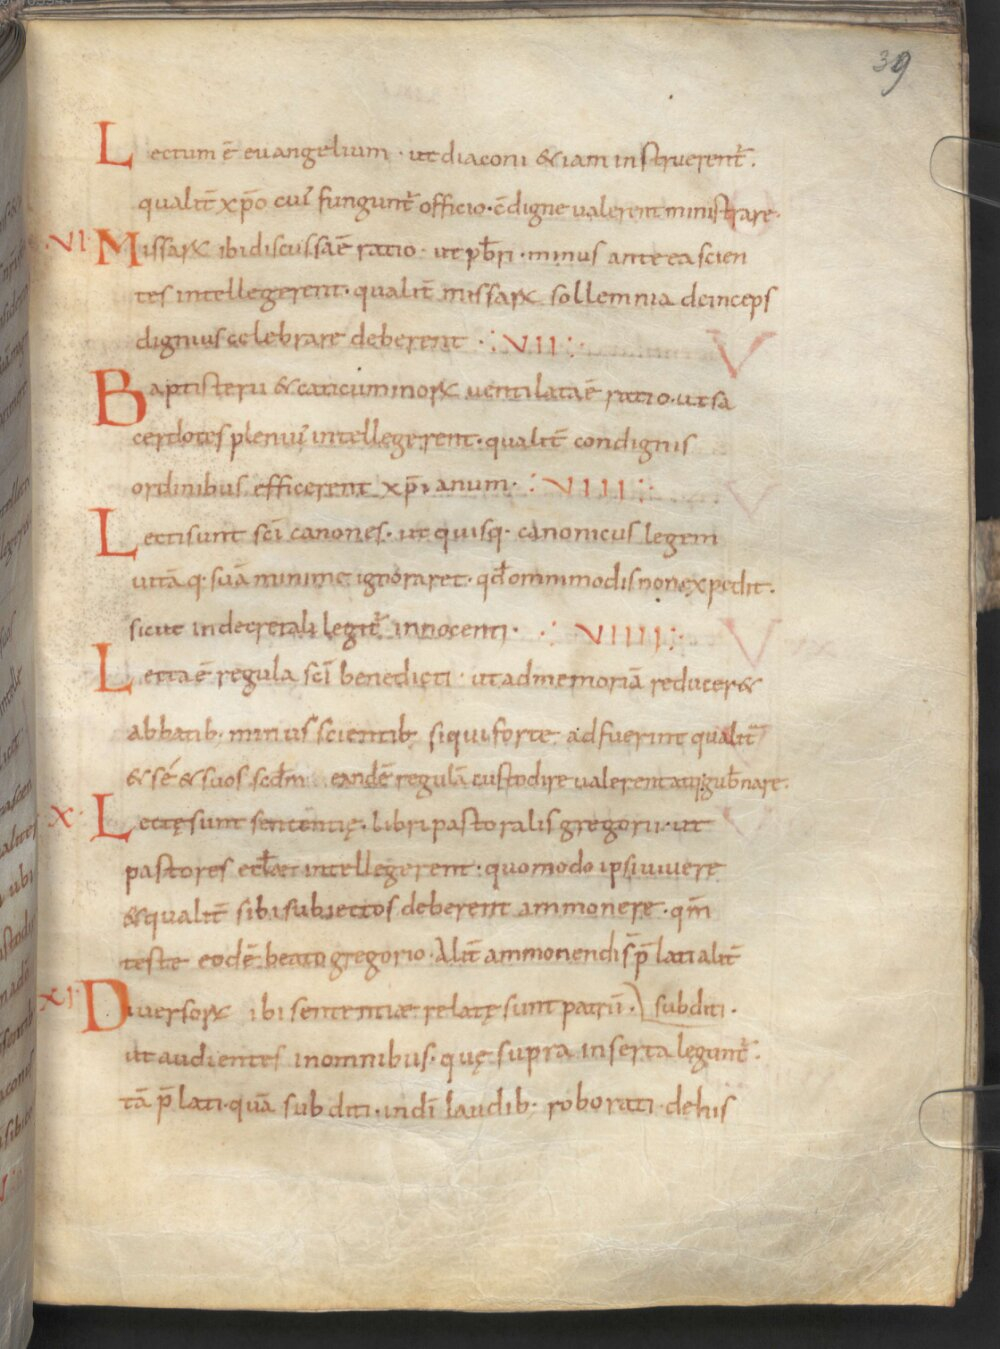 39
Lectum ē euangelium · ut diaconi &iam instruerent̄.
qualit̄ xp̄o cui' fungunt̄ officio · c̄digne ualerent ministrare ·
·VI· Missarꝝ ibi discussa ē ratio · ut pb̄ri · minus ante ea scien
tes intellegerent · qualit̄ missarꝝ sollemnia deinceps
dignius celebrare deberent · :VII:
Baptisterii & caticuminorꝝ uentilata ē ratio · ut sa
cerdotes pleniu' intellegerent · qualit̄ condignis
ordinibus efficerent xp̄ianum · :VIII:
Lecti sunt sc̄i canones · ut quisq· canonicus legem
uitā q· suā minime ignoraret · qd̄ ommimodis non expedit ·
sicut in decretali legit̄ innocenti · :VIIII:
Lecta ē regula sc̄i benedicti · ut ad memoriā reducer&
abbatib· minus scientib· si qui forte adfuerint qualit̄
& sé & suos scd̄m eandē regulā custodire ualerent atq· gub̄nare ·
X · Lectę sunt sententię · libri pastoralis gregorii · ut
pastores eccl̄ae intellegerent · quomodo ipsi uiuere
& qualit̄ sibi subiectos deberent ammonere · qm̄
teste eodē beato gregorio · Alit̄ ammonendi s̄ p̄lati alit̄
XI· Diuersorꝝ ibi sententiae relatę sunt patrū · subditi ·
ut audientes in omnibus · quę supra inserta legunt̄ ·
tā p̄lati · quā subditi · in dī laudib· roborati · de his